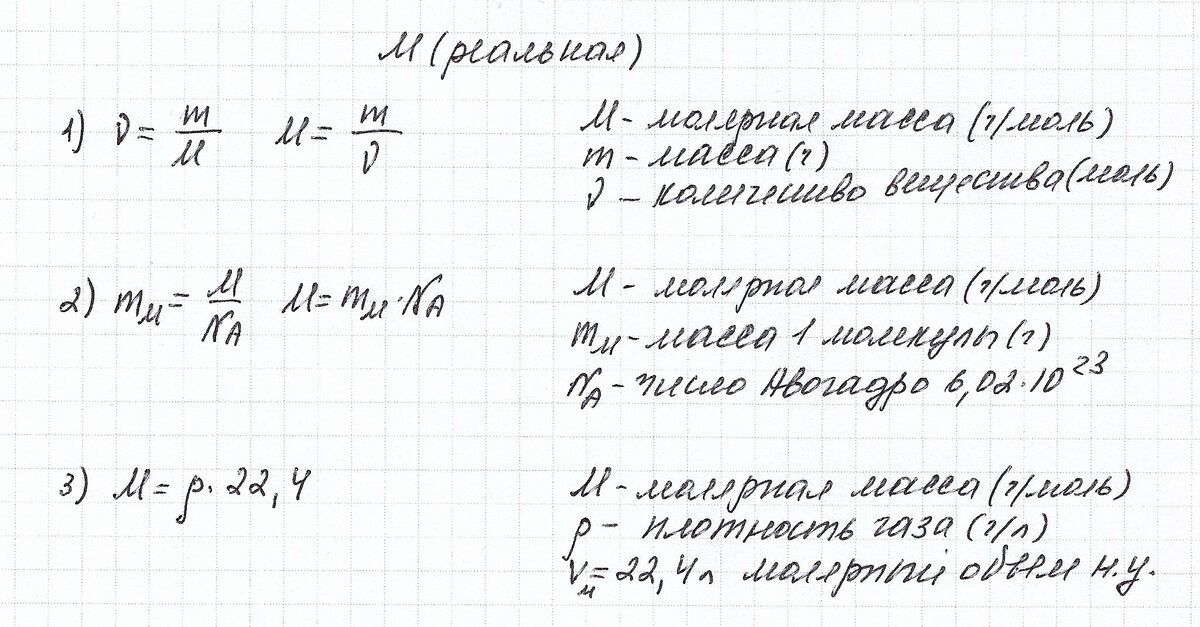 М (реальная)
1) ν = m/М М = m/ν
М - молярная масса (г/моль)
m - масса (г)
ν - количество вещества (моль)
2) mм = М/NА М = mм · NА
М - молярная масса (г/моль)
mм - масса 1 молекулы (г)
NА - число Авогадро 6,02·10²³
3) М = ρ · 22,4
М - молярная масса (г/моль)
ρ - плотность газа (г/л)
Vм = 22,4 л молярный объем н.у.